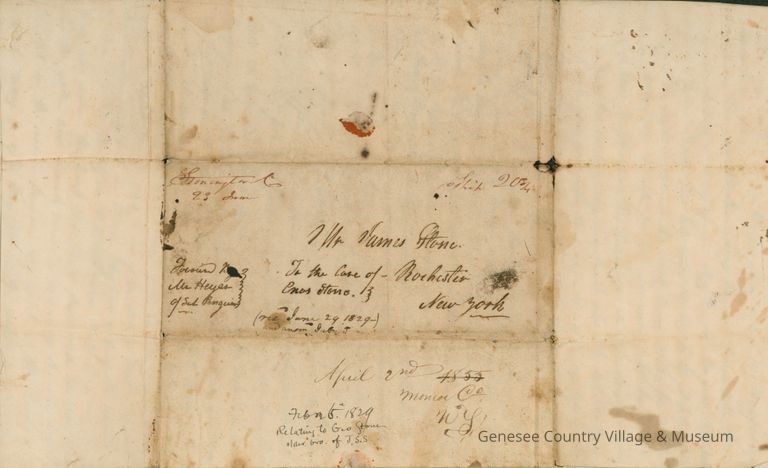 Stonington C
23 June
Ship 20¾
Mr James Stone.
To the Care of - Rochester
Enos Stone.
New York
Forward
Mr Heyer
of Sch Penguin
(rec June 29 1829)
April 2nd 1833
Monroe Co
N Y
Feb 5. 1829
Relating to Geo Stone
bro. of J.S.S
Genesee Country Village & Museum